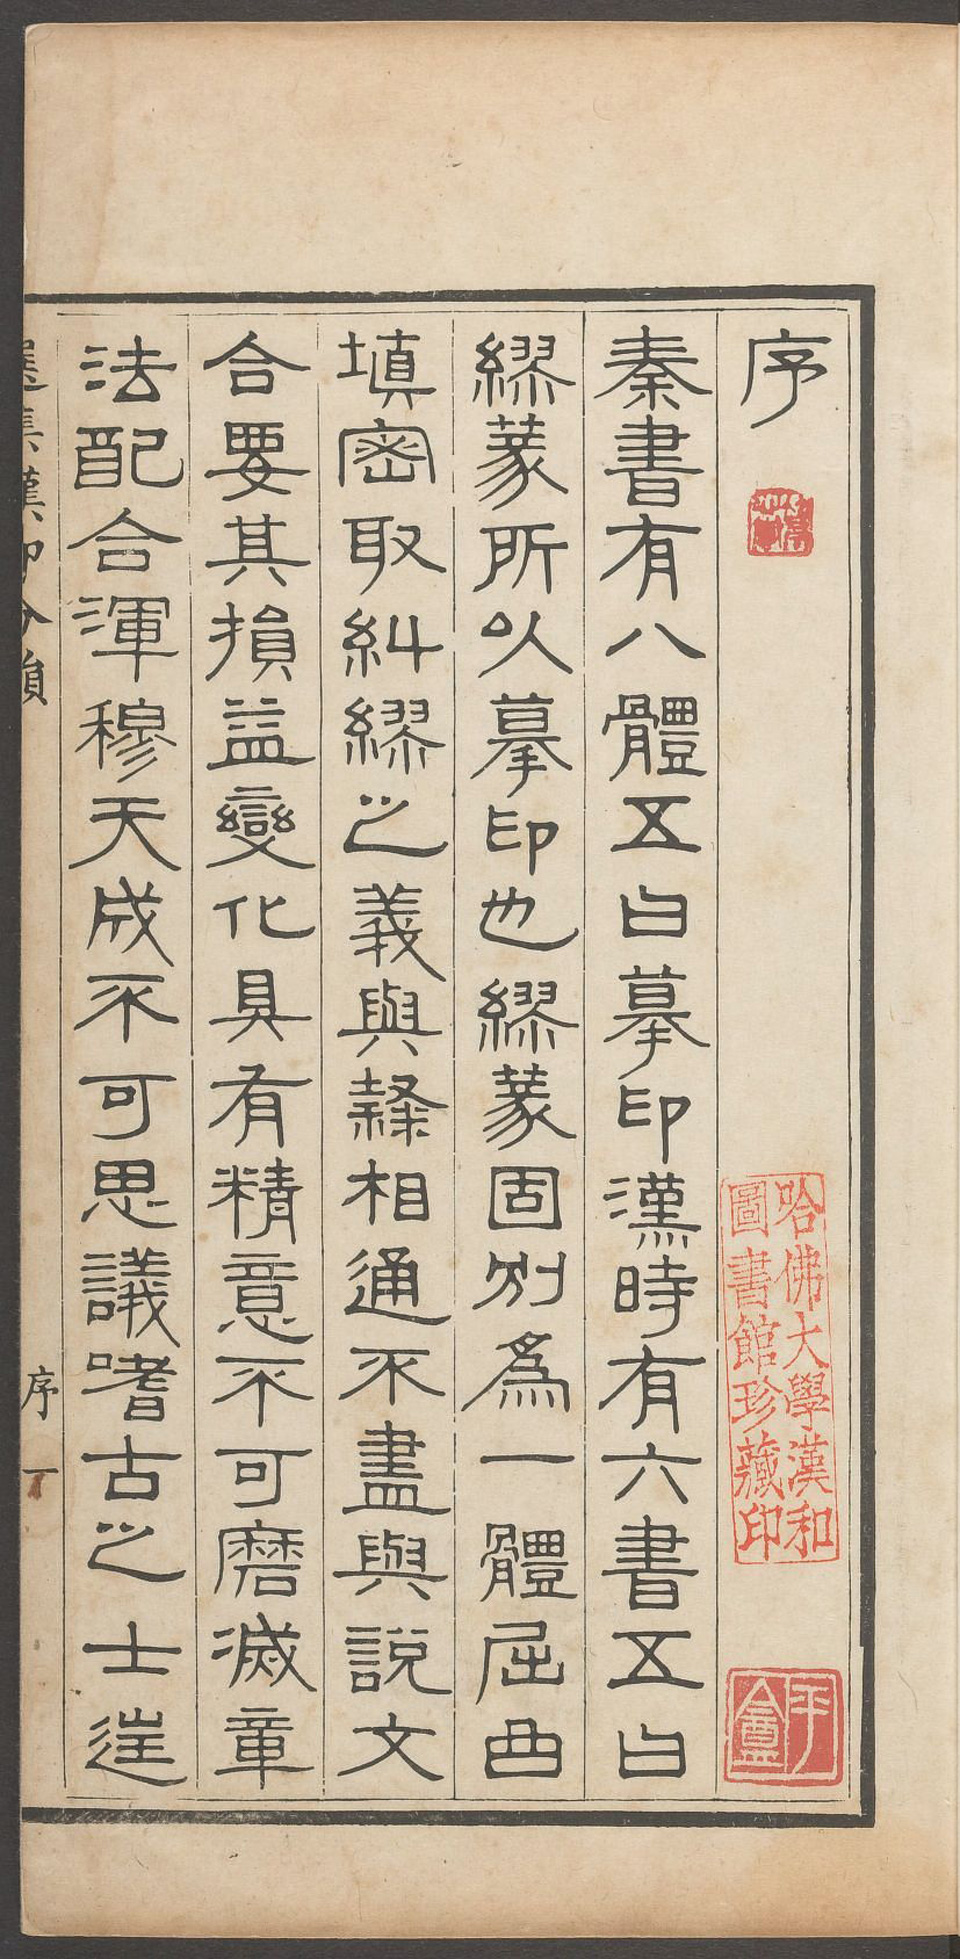 序
秦書有八體五曰摹印漢時有六書五曰
繆篆所以摹印也繆篆固別為一體屈曲
填密取糾繆之義與隸相通不盡與說文
合要其損益變化具有精意不可磨滅章
法配合渾穆天成不可思議嗜古之士逞
選集漢印分韻
序
哈佛大學漢和
圖書館珍藏印
平
盦